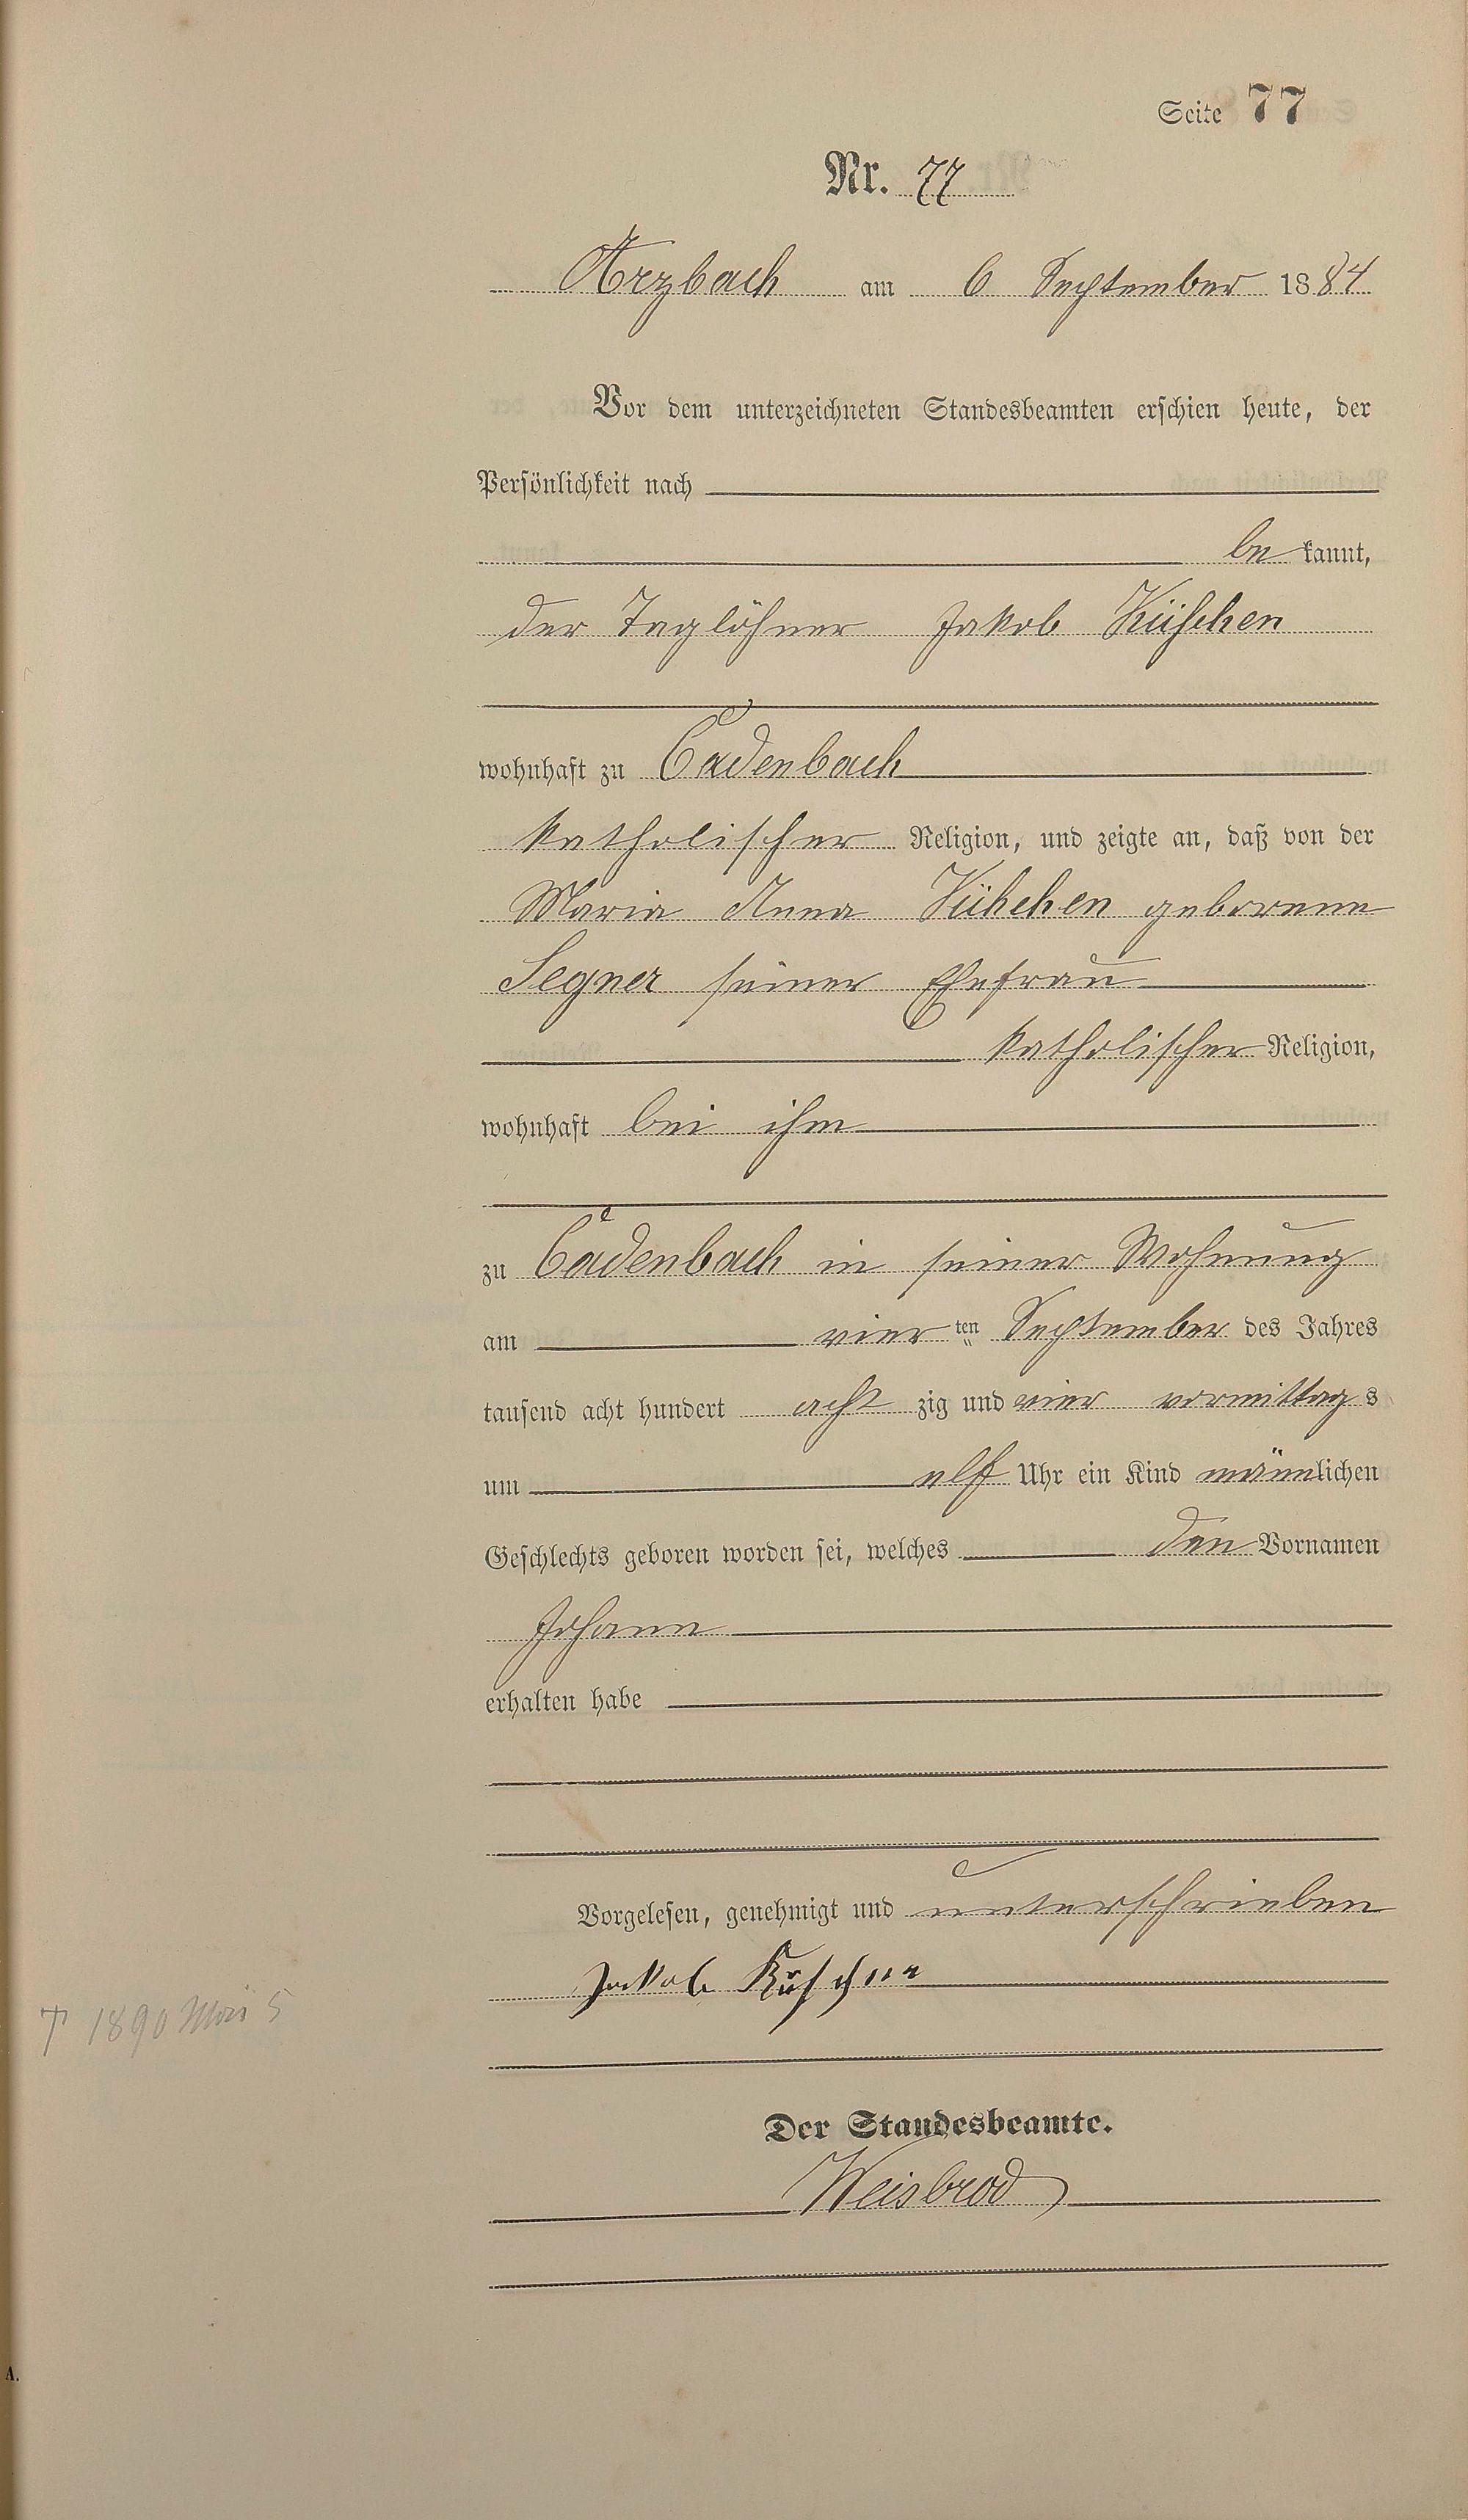 Seite 77
Nr. 77
Arzbach am 6 September 1884
Vor dem unterzeichneten Standesbeamten erschien heute, der
Persönlichkeit nach
be kannt,
der Taglöhner Jakob
wohnhaft zu Cadenbach
katholischer Religion, und zeigte an, daß von der
Maria Anna geborenen
Segner seiner Ehefrau
katholischer Religion,
wohnhaft bei ihm
zu Cadenbach in seiner Wohnung
am vier ten September des Jahres
tausend acht hundert acht zig und vier vormittag s
um elf Uhr ein Kind männlichen
Geschlechts geboren worden sei, welches den Vornamen
Johann
erhalten habe
Vorgelesen, genehmigt und unterschrieben
Jakob
† 1890 Mai 5
Der Standesbeamte.
Weisbrod
A.